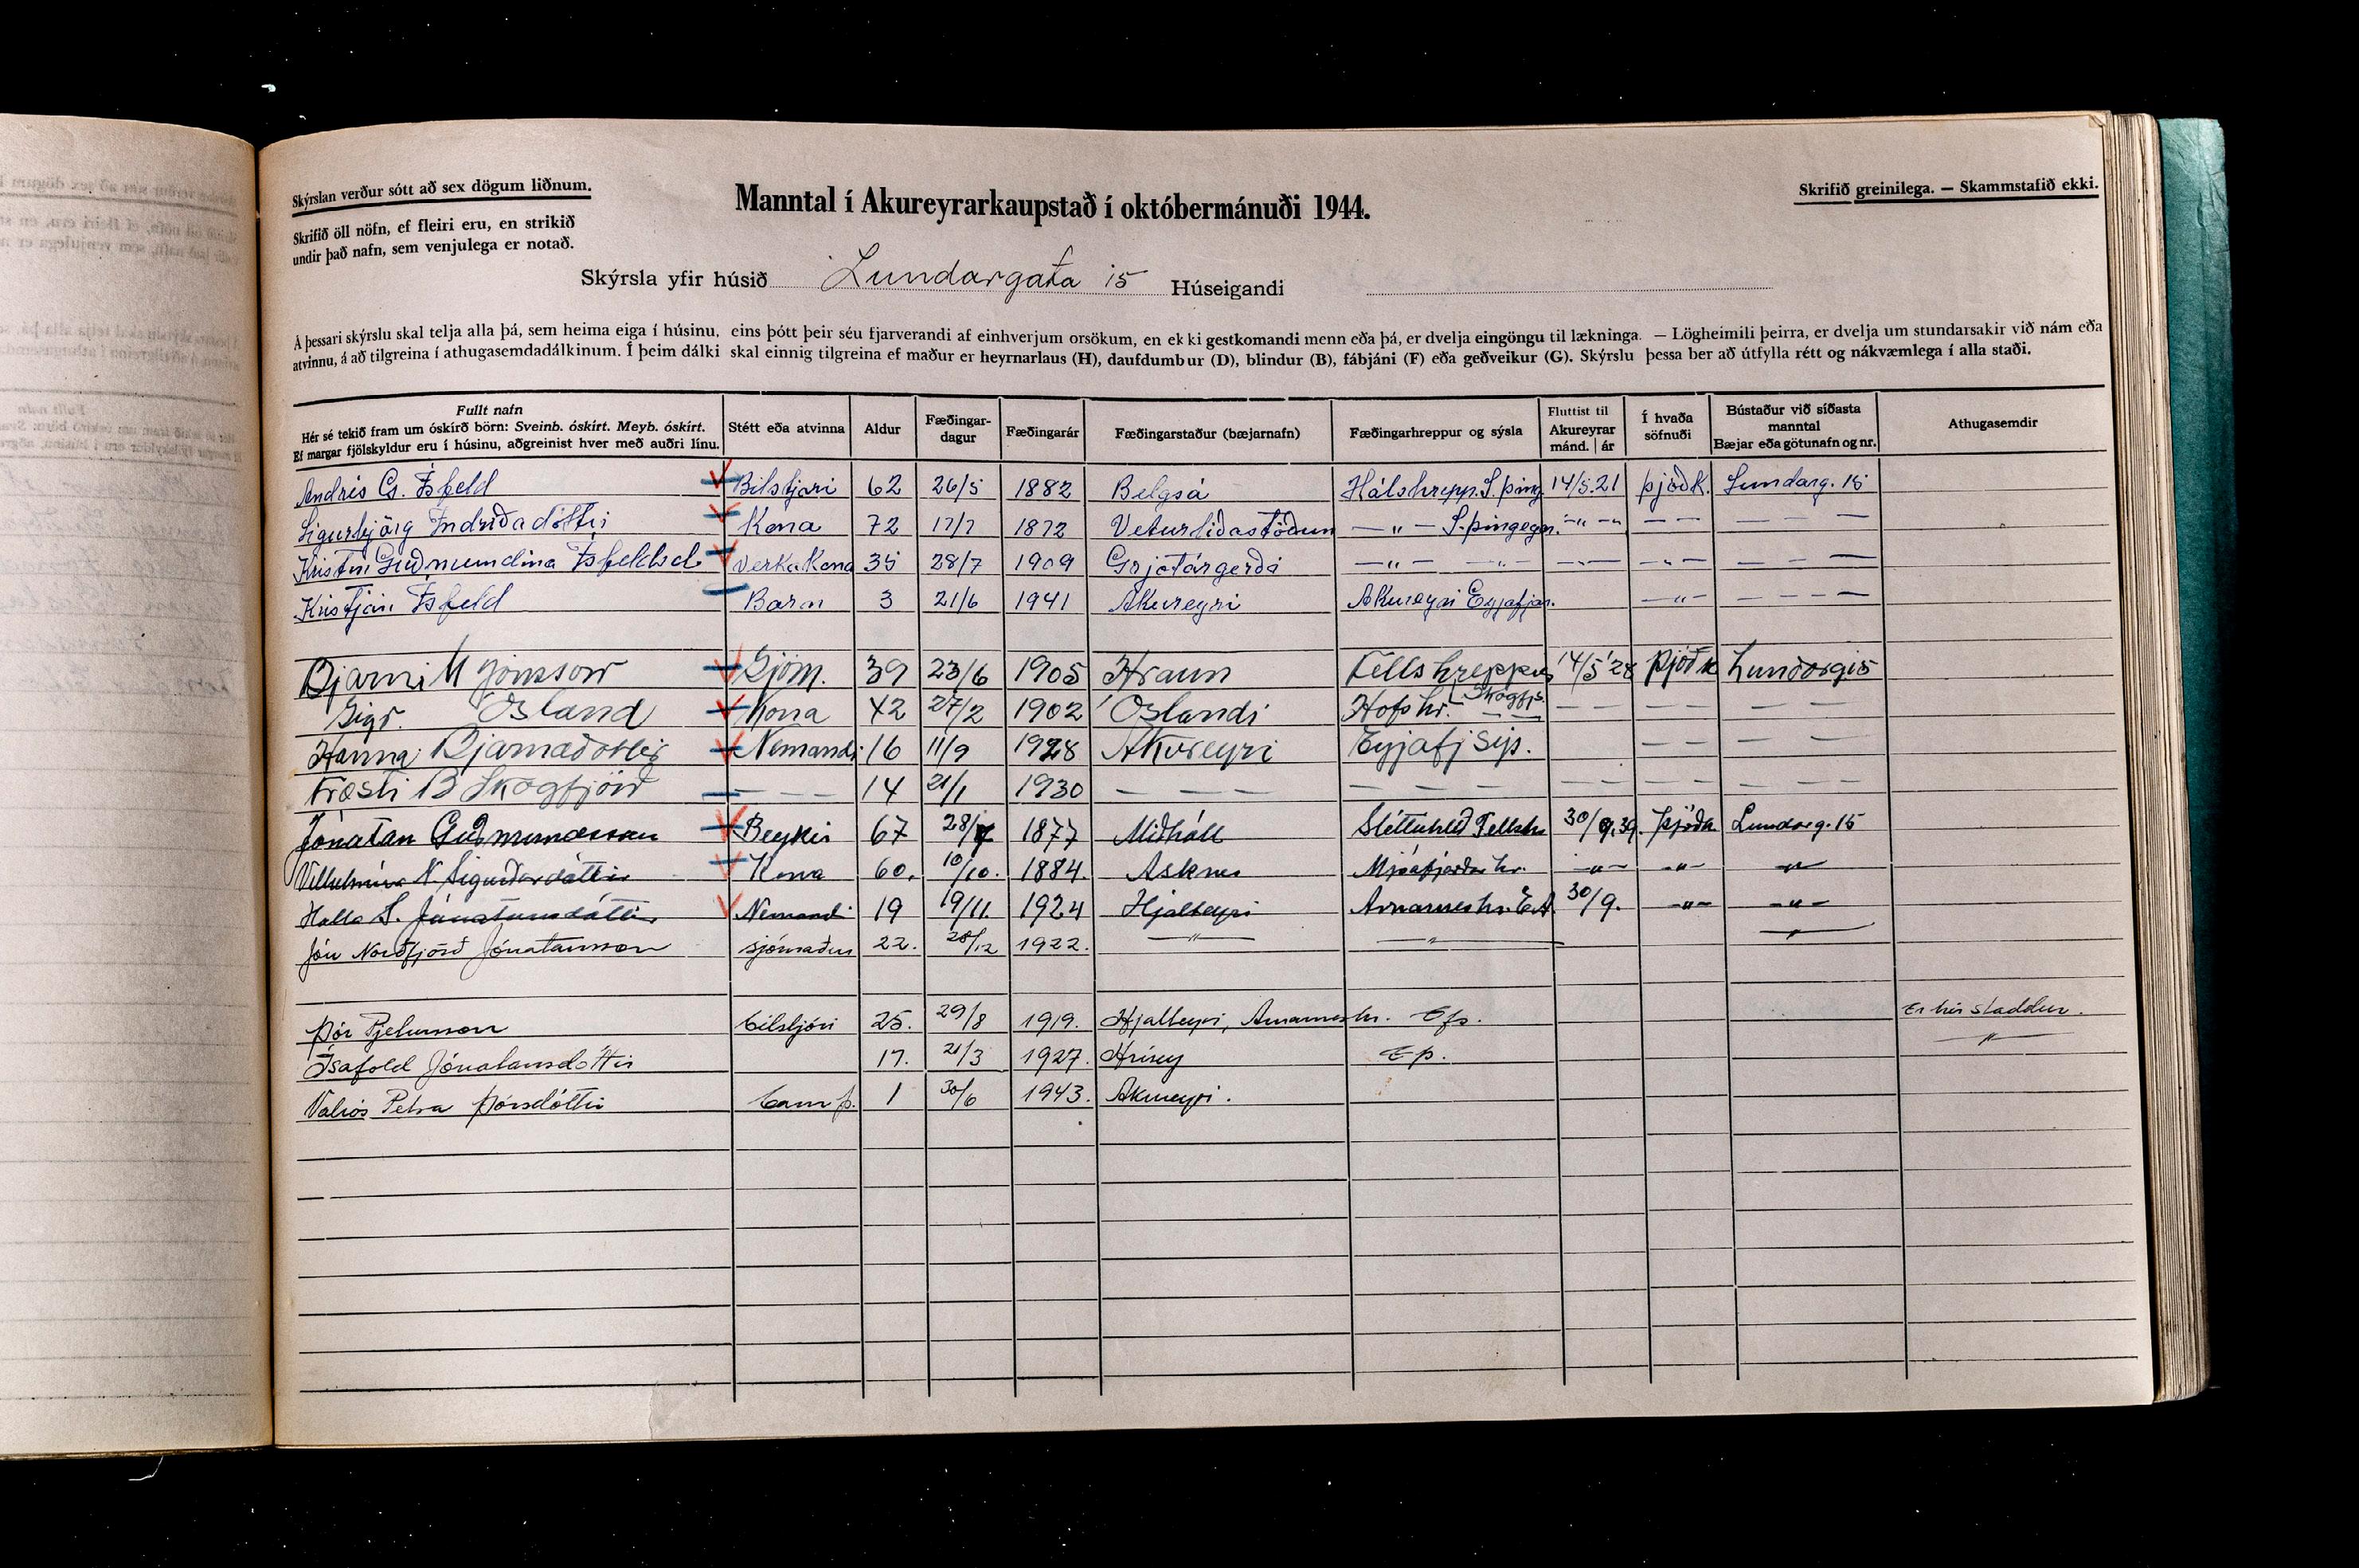 Skýrslan verður sótt að sex dögum liðnum.
Skrifið öll nöfn, ef fleiri eru, en strikið
undir það nafn, sem venjulega er notað.
Manntal í Akureyrarkaupstað í októbermánuði 1944.
Skrifið greinilega. — Skammstafið ekki.
Skýrsla yfir húsið Lundargata 15 Húseigandi
Á þessari skýrslu skal telja alla þá, sem heima eiga í húsinu, eins þótt þeir séu fjarverandi af einhverjum orsökum, en ekki gestkomandi menn eða þá, er dvelja eingöngu til lækninga. — Lögheimili þeirra, er dvelja um stundarsakir við nám eða
atvinnu, á að tilgreina í athugasemdadálkinum. Í þeim dálki skal einnig tilgreina ef maður er heyrnarlaus (H), daufdumbur (D), blindur (B), fábjáni (F) eða geðveikur (G). Skýrslu þessa ber að útfylla rétt og nákvæmlega í alla staði.
Fullt nafn
Hér sé tekið fram um óskírð börn: Sveinb. óskírt. Meyb. óskírt.
Ef margar fjölskyldur eru í húsinu, aðgreinist hver með auðri línu.
Stétt eða atvinna
Aldur
Fæðingar-
dagur
Fæðingarár
Fæðingarstaður (bæjarnafn)
Fæðingarhreppur og sýsla
Fluttist til
Akureyrar
mánd. | ár
Í hvaða
söfnuði
Bústaður við síðasta
manntal
Bæjar eða götunafn og nr.
Athugasemdir
Andrés G. Ísfeld Bilstjóri 62 26/5 1882 Belgsá Hálshrepp. S. þing. 14/5.21 þjóðk. Lundarg. 15
Sigurbjörg Indriðadóttir Kona 72 17/7 1872 Veturliðastöðum — " — S. þingeyar. — " — — — — — —
Kristín Guðmundina Ísfeld Verkakona 35 28/7 1909 Grjótárgerði — " — — " — — " — — " — — — —
Kristján Ísfeld Barn 3 21/6 1941 Akureyri Akureyri Eyjafjar. — " — — — — —
Bjarni M Jónsson Sjóm. 39 23/6 1905 Hraun Fellshreppur 14/5 '28 Þjóðk Lundarg 15
Sigr. Ósland Kona 42 27/2 1902 Óslandi Hofshr. Skagfjs. — — — — — — —
Hanna Bjarnadóttir Nemandi 16 11/9 1928 Akureyri Eyjafj sýs. — — — — —
Trosti B Skagfjörð — — — 14 21/1 1930 — — — — — — — — — — — — —
Jónatan Guðmundsson Beykir 67 28/7 1877 Miðhóll Sléttuhlíð Fellshr 30/9.39. Þjóðk. Lundarg. 15
Vilhelmína N. Sigurðardóttir Kona 60. 10/10. 1884. Asknes Mjóafjarðar hr. — " — — " — — " —
Halla S. Jónatansdóttir Nemandi 19 19/11. 1924 Hjalteyri Arnarneshr. EA. 30/9. — " — — " —
Jón Norðfjörð Jónatansson sjómaður 22. 28/12 1922. — " — — " — — " —
Þór Pjetursson bílstjóri 25. 29/8 1919. Hjalteyri, Arnarneshr. Efs. Er hér staddur.
Ísafold Jónatansdóttir 17. 21/3 1927. Hrísey — " —
Valrós Petra Þórsdóttir barn þ. 1 30/6 1943. Akureyri.